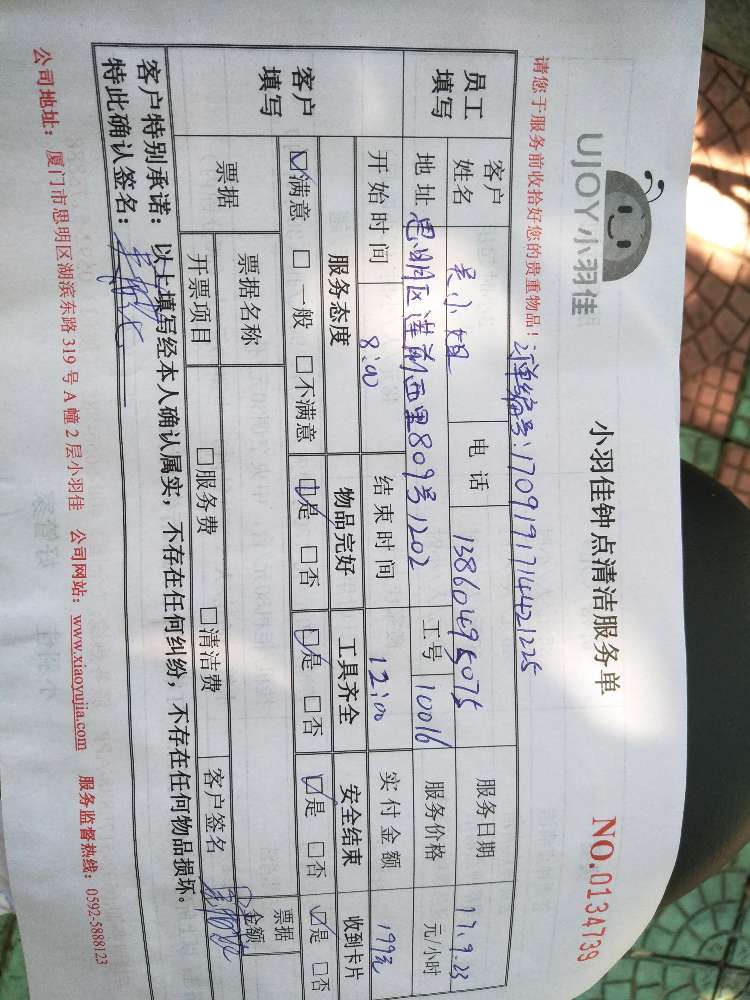 UJOY小羽佳
小羽佳钟点清洁服务单
NO.0134739
请您于服务前收拾好您的贵重物品！
订单编号:1709191714421225
员工填写
客户姓名 吴小姐 电话 13860495075 服务日期 17.9.23
地址 思明区莲前西里809号1202 工号 10016 服务价格 元/小时
开始时间 8:00 结束时间 12:00 实付金额 199元
客户填写
服务态度 物品完好 工具齐全 安全结束 收到卡片
☑满意 □一般 □不满意 ☑是 □否 ☑是 □否 ☑是 □否 ☑是 □否
票据 票据名称 票据金额
开票项目 □服务费 □清洁费 客户签名
客户特别承诺：以上填写经本人确认属实，不存在任何纠纷，不存在任何物品损坏。
特此确认签名：
公司地址：厦门市思明区湖滨东路319号A幢2层小羽佳 公司网站：www.xiaoyujia.com 服务监督热线：0592-5888123